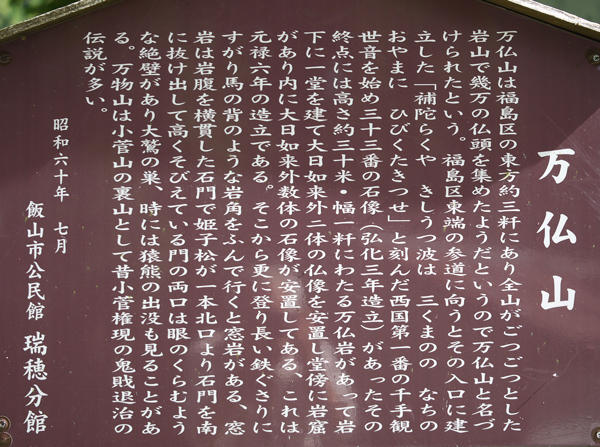 万仏山
万仏山は福島区の東方約三粁にあり全山がごつごつとした
岩山で幾万の仏頭を集めたようだというので万仏山と名づ
けられたという。福島区東端の参道に向うとその入口に建
立した「補陀らくや きしうつ波は 三くまのの なちの
おやまに ひびくたきつせ」と刻んだ西国第一番の千手観
世音を始め三十三番の石像（弘化三年造立）があったその
終点には高さ約三十米・幅一粁にわたる万仏岩があって岩
下に一堂を建て大日如来外二体の仏像を安置し堂傍に岩窟
があり内に大日如来外数体の石像が安置してある、これは
元禄六年の造立である。そこから更に登り長い鉄ぐさりに
すがり馬の背のような岩角をふんで行くと窓岩がある、窓
岩は岩腹を横貫した石門で姫子松が一本北口より石門を南
に抜け出して高くそびえている門の両口は眼のくらむよう
な絶壁があり大鷲の巣、時には猿熊の出没も見ることがあ
る。万物山は小菅山の裏山として昔小菅権現の鬼賊退治の
伝説が多い。
昭和六十年 七月
飯山市公民館 瑞穂分館